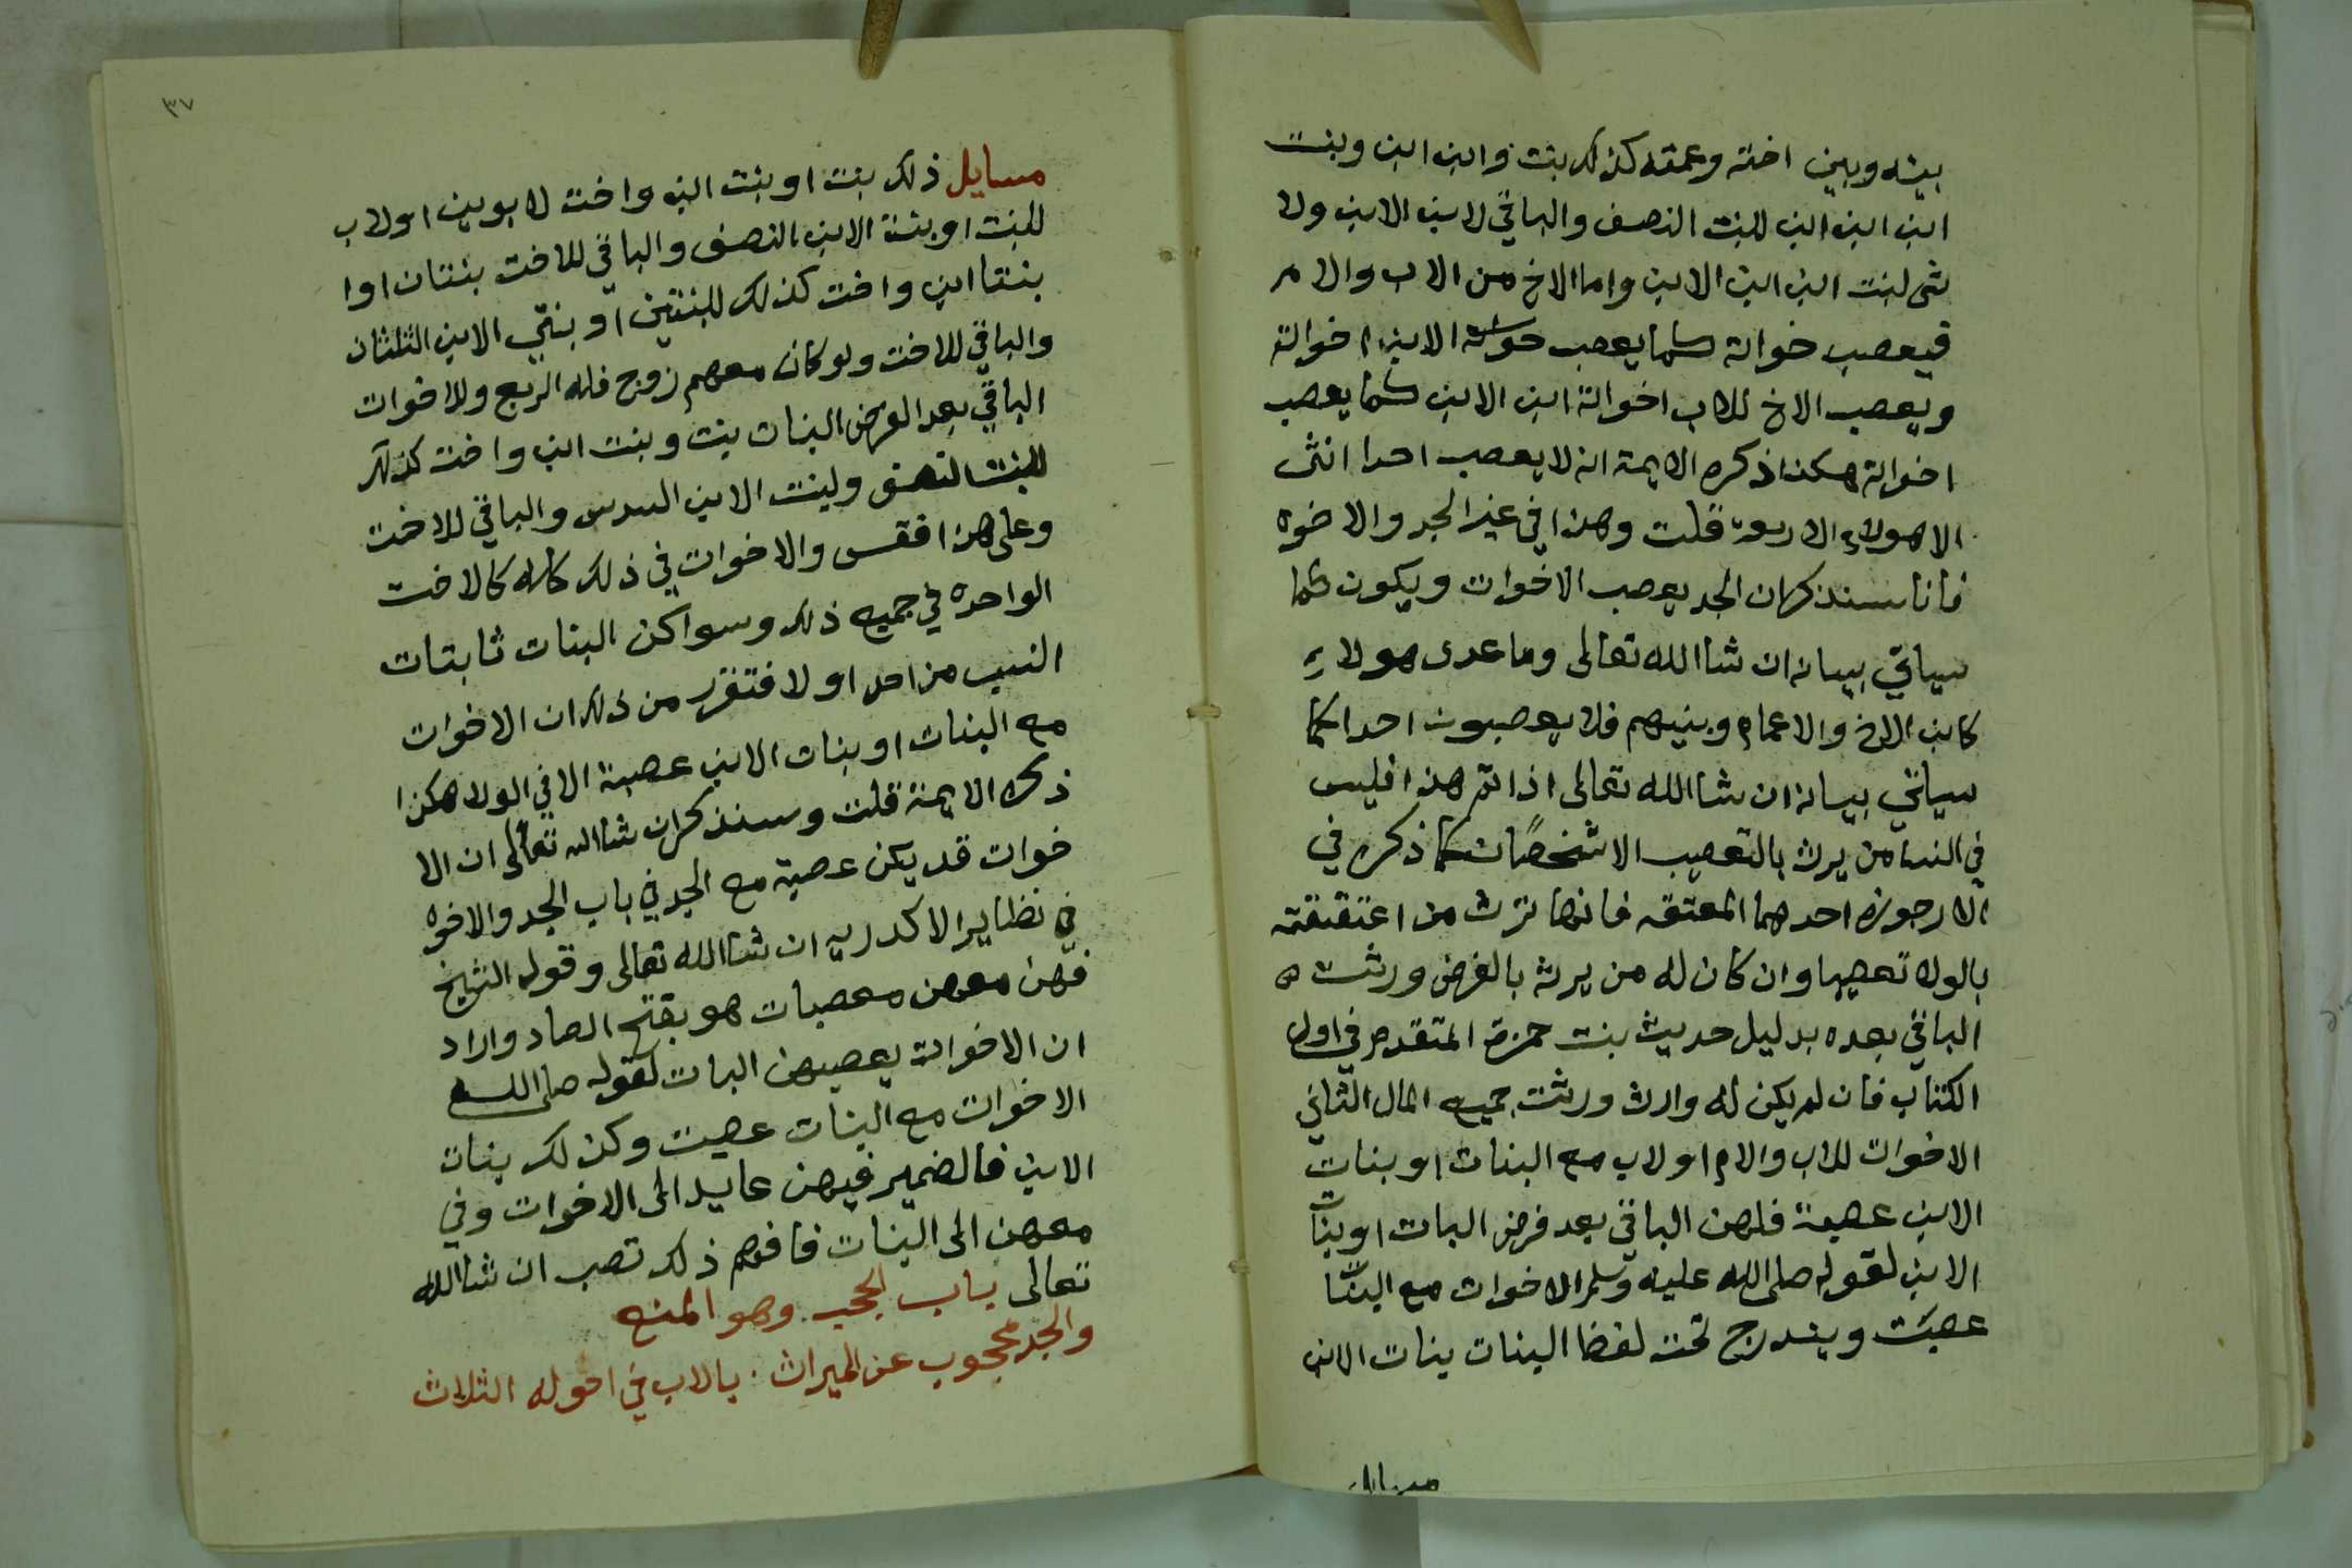 بينه وبين اخته وعمته كذلك بنت وابن ابن وبنت
ابن ابن ابن للبنت النصف والباقي لابن الابن ولا
شى لبنت ابن ابن الابن واما الاخ من الاب والام
فيعصب خواته كما يعصب الابن اخواته
ويعصب الاخ للاب اخواته ابن الابن كما يعصب
اخواته هكذا ذكره الايمة انه لا يعصب احدا انثى
الا هولاء الاربعة قلت وهذا في غير الجد والاخوه
فانا سنذكر ان الجد يعصب الاخوات ويكون كما
سياتي بيانه ان شا الله تعالى وما عدى هولاء
كابن الاخ والاعمام وبنيهم فلا يعصبون احدا كما
سياتي بيانه ان شا الله تعالى اذا تم هذا فليس
في النسا من يرث بالتعصيب الا شخصان كما ذكره في
الارجوزه احدهما المعتقه فانها ترث من اعتقته
بالولا تعصيبا وان كان له من يرث بالفرض ورثت
الباقي بعده بدليل حديث بنت حمزة المتقدم في اول
الكتاب فان لم يكن له وارث ورثت جميع المال الثاني
الاخوات للاب والام او لاب مع البنات او بنات
الابن عصبة فلهن الباقي بعد فرض البات او بنات
الابن لقوله صلى الله عليه وسلم الاخوات مع البنات
عصبت ويندرج تحت لفظ البنات بنات الابن
مسايل
٣٧
مسايل ذلك بنت او بنت ابن واخت لابوين او لاب
للبنت او بنت الابن النصف والباقي للاخت بنتان اوا
بنتا ابن واخت كذلك للبنتين او بنتي الابن الثلثان
والباقي للاخت ولو كان معهم زوج فله الربع وللاخوات
الباقي بعد الفرض البنات بنت وبنت ابن واخت كذلك
للبنت النصف ولبنت الابن السدس والباقي للاخت
وعلى هذا فقس والاخوات في ذلك كله كالاخت
الواحده في جميع ذلك وسوا كن البنات ثابتات
النسب من احد او لا فتقرر من ذلك ان الاخوات
مع البنات او بنات الابن عصبة الا في الولا هكذا
ذكره الايمة قلت وسنذكر ان شا الله تعالى ان الا
خوات قد يكن عصبة مع الجد في باب الجد والاخوه
في نظاير الاكدريه ان شا الله تعالى وقول الشيخ
فهن معهن معصبات هو بفتح الصاد واراد
ان الاخوات يعصبهن البات لقوله صلى الله
الاخوات مع البنات عصبت وكذلك بنات
الابن فالضمير فيهن عايد الى الاخوات وفي
معهن الى البنات فافهم ذلك تصب ان شا الله
تعالى باب الحجب وهو المنع
والجد محجوب عن الميراث بالاب في احواله الثلاث